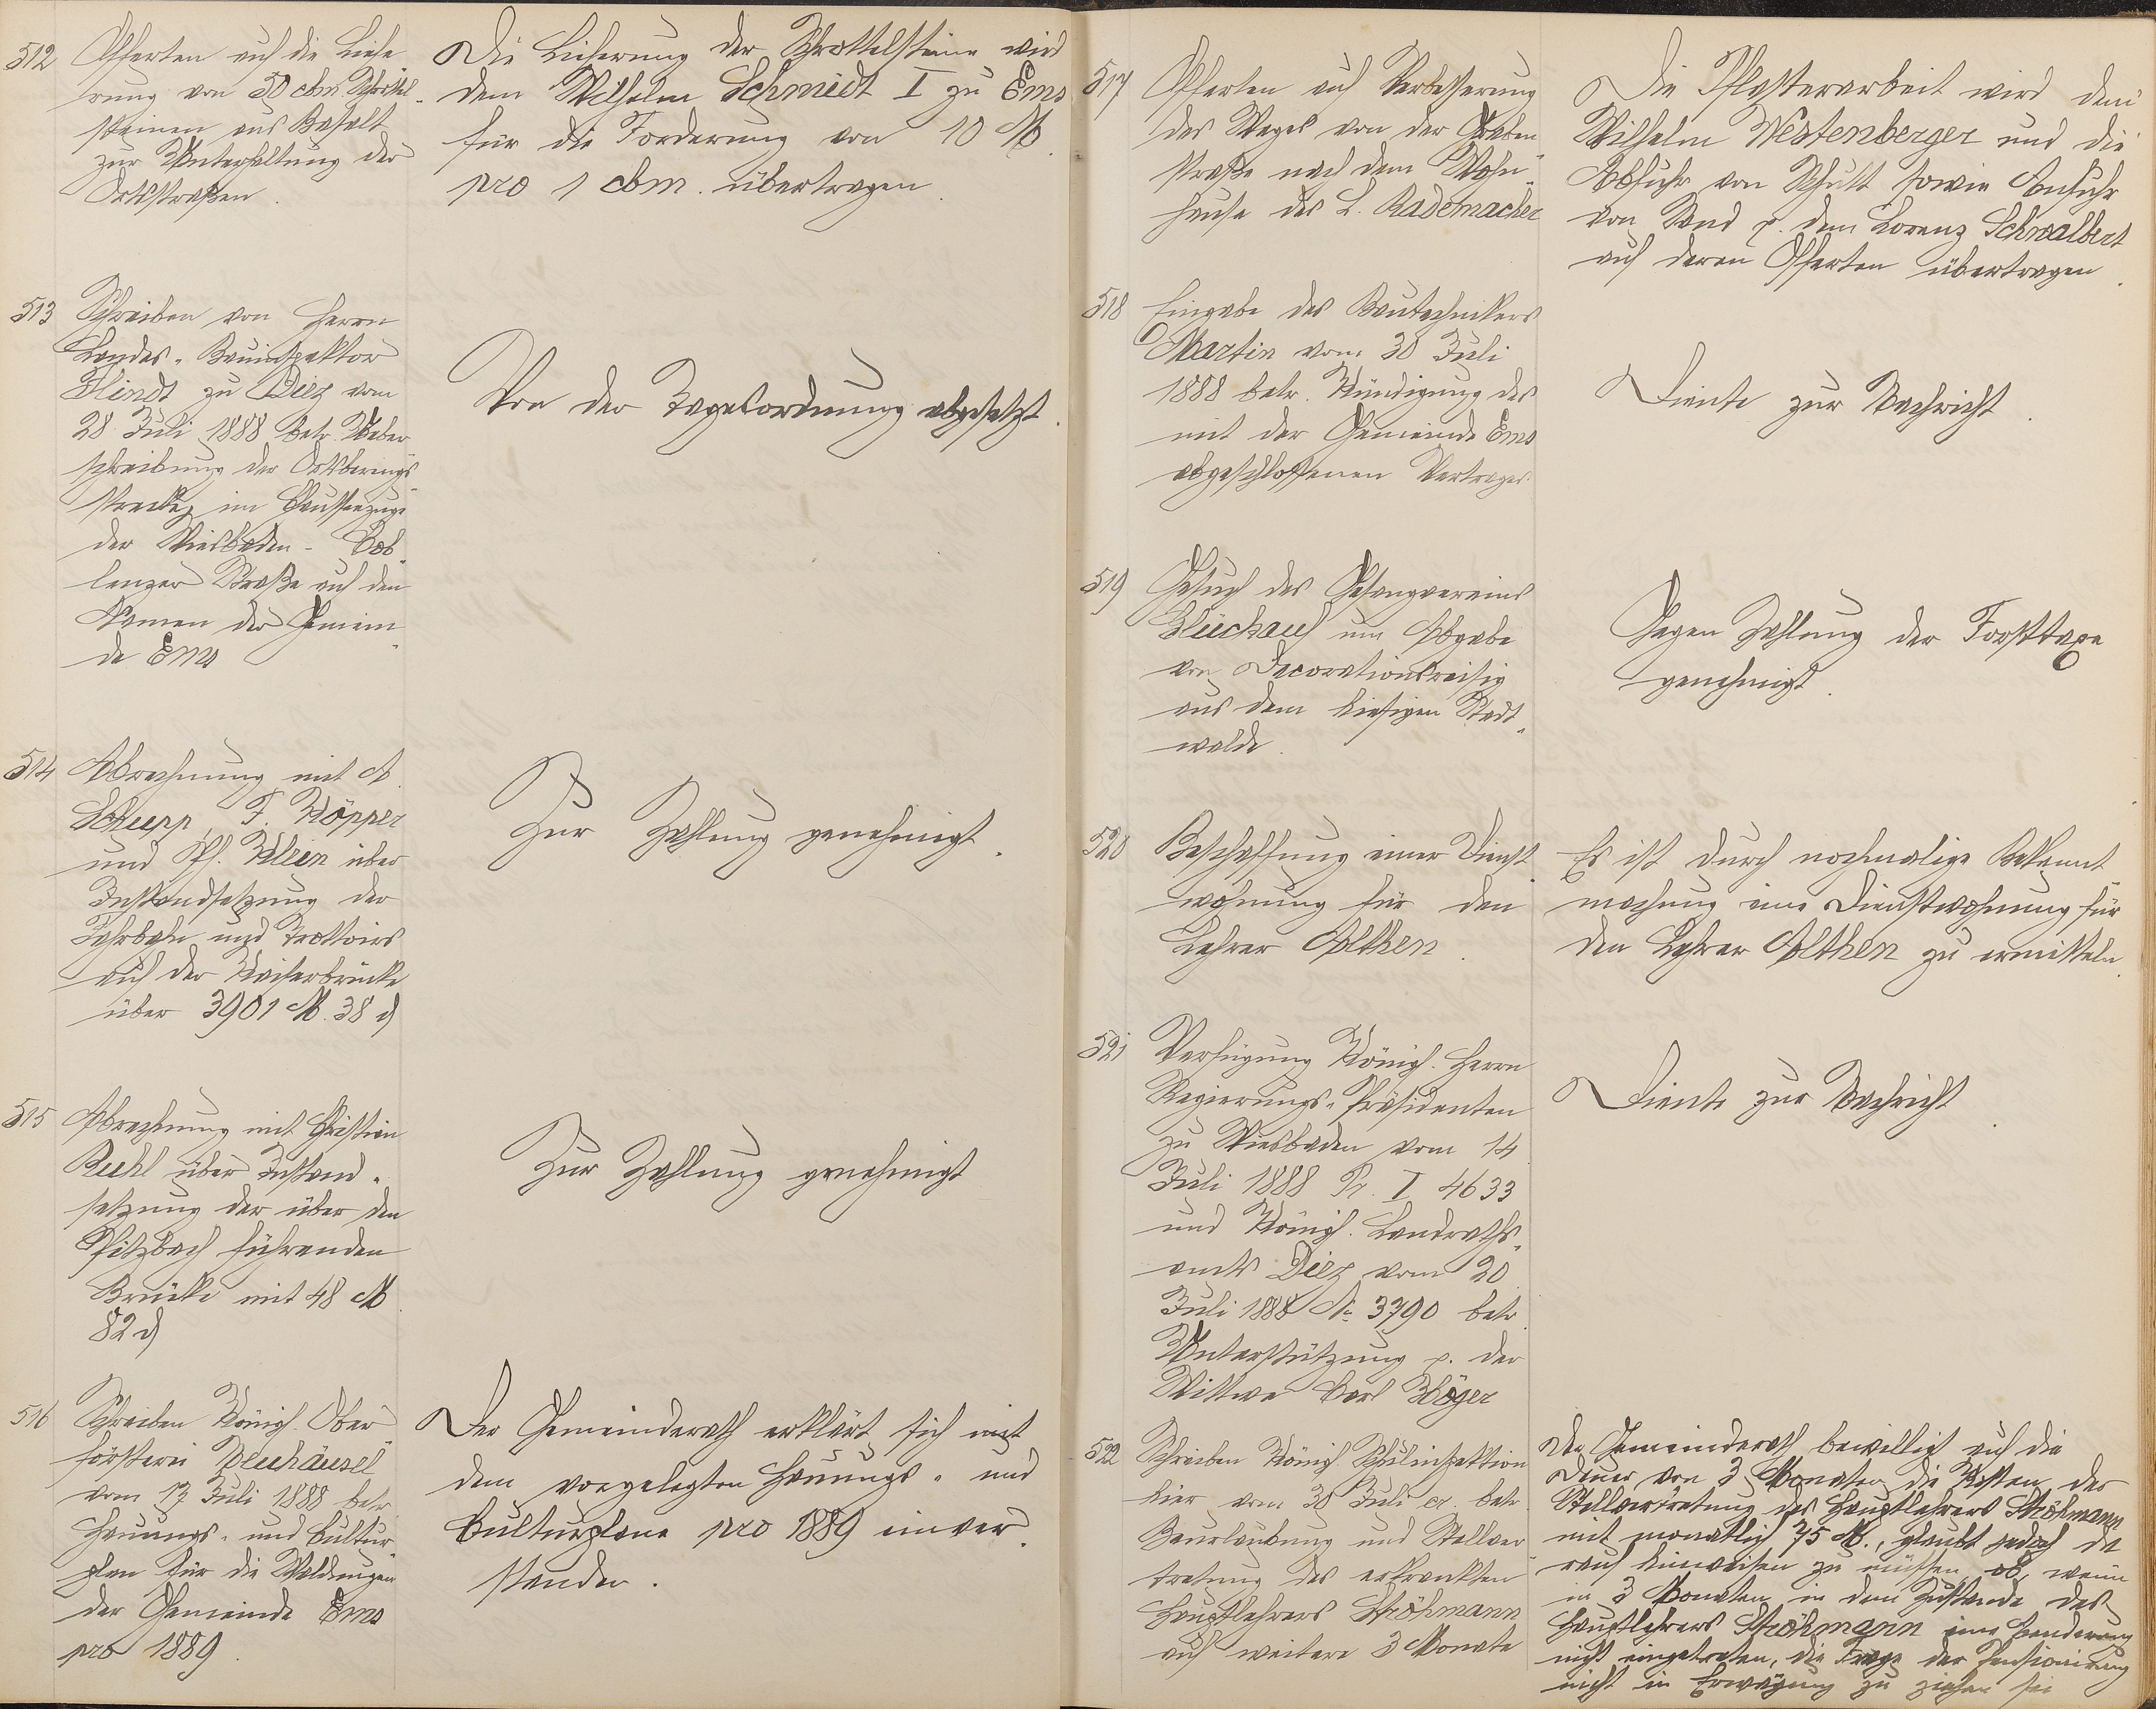 512
Offerten auf die Liefe
rung von 50 cbm Schrottel-
steinen aus Basalt
zur Unterhaltung der
Ortsstraßen.
Die Lieferung der Schrottelsteine wird
dem Wilhelm Schmidt I zu Ems
für die Forderung von 10 M.
pro 1 cbm. übertragen.
513
Schreiben von Herrn
Landes-Bauinspektor
zu Diez vom
28 Juli 1888 betr. Ueber
schreibung der Ortsberings
strecke im Chausseezuge
der Wiesbaden-Cob-
lenzer Straße auf den
Namen der Gemein-
de Ems
Von der Tagesordnung abgesetzt.
514
Abrechnung mit A.
Schupp, F. Köpper
und Ph. Klein über
Instandsetzung der
Fahrbahn und Trottoirs
auf der Kaiserbrücke
über 3901 M. 38 ₰
Zur Zahlung genehmigt.
515
Abrechnung mit Christian
Buhl über Instand-
setzung der über den
Pitzbach führenden
Brücke mit 48 M.
82 ₰
Zur Zahlung genehmigt
516
Schreiben Königl. Ober-
försterei Neuhäusel
vom 17 Juli 1888 betr.
Hauungs- und Cultur-
plan für die Waldungen
der Gemeinde Ems
pro 1889.
Der Gemeinderath erklärt sich mit
dem vorgelegten Hauungs- und
Culturplane pro 1889 einver-
standen.
517
Offerten auf Verbesserung
des Weges von der Graben-
straße nach dem Wohn-
hause des L. Rademacher
Die Pflasterarbeit wird dem
Wilhelm Westenberger und die
Abfuhr von Schutt sowie Anfuhr
von Sand p. dem Lorenz Schwalbert
auf deren Offerten übertragen.
518
Eingabe des Bautechnikers
Martin vom 30 Juli
1888 betr. Kündigung des
mit der Gemeinde Ems
abgeschlossenen Vertrages.
Diente zur Nachricht.
519
Gesuch des Gesangvereins
Glückauf um Abgabe
von Decorationsreisig
aus dem hiesigen Stadt-
walde.
Gegen Zahlung der Forsttaxe
genehmigt.
520
Beschaffung einer Dienst-
wohnung für den
Lehrer Althen.
Es ist durch nochmalige Bekannt-
machung eine Dienstwohnung für
den Lehrer Althen zu ermitteln.
521
Verfügung Königl. Herrn
Regierungs-Präsidenten
zu Wiesbaden vom 14.
Juli 1888 Pr. I 4633
und Königl. Landraths-
amts Diez vom 20.
Juli 1888 No 3790 betr.
Unterstützung p. der
Wittwe Carl Höger
Diente zur Nachricht.
522
Schreiben Königl Schulinspektion
hier vom 30 Juli cr. betr.
Beurlaubung und Stellver-
tretung des erkrankten
Hauptlehrers Ströhmann
auf weitere 3 Monate
Der Gemeinderath bewilligt auf die
Dauer von 3 Monaten die Kosten der
Stellvertretung des Hauptlehrers Ströhmann
mit monatlich 75 M., glaubt jedoch da
rauf hinweisen zu müssen, ob, wenn
in 3 Monaten in dem Zustande des
Hauptlehrers Ströhmann eine Aenderung
nicht eingetreten, die Frage der Pensionirung
nicht in Erwägung zu ziehen sei